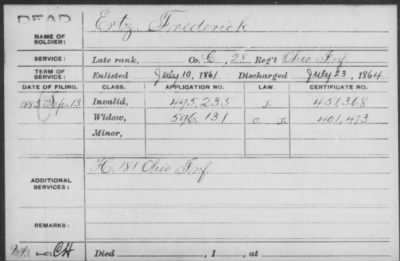 DEAD
NAME OF SOLDIER: Ertz Frederick
SERVICE: Late rank, Co. C, 28 Reg't Ohio Inf.
TERM OF SERVICE: Enlisted July 10, 1861 Discharged July 23, 1864
DATE OF FILING. CLASS. APPLICATION NO. LAW. CERTIFICATE NO.
1883 Sep. 13 Invalid, 495,235 451,368
Widow, 596,131 401,473
Minor,
ADDITIONAL SERVICES: H. 181 Ohio Inf.
REMARKS:
CH Died , 1 , at